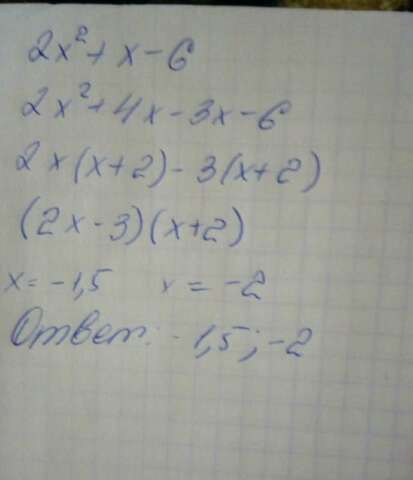 2x² + x - 6
2x² + 4x - 3x - 6
2x(x+2) - 3(x+2)
(2x - 3)(x+2)
x = -1,5 x = -2
Ответ: -1,5; -2